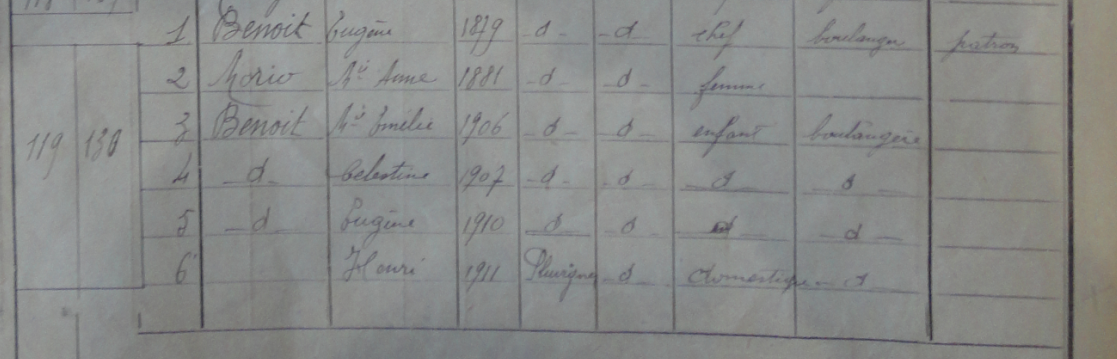 1 Benoit Eugène 1879 -d- -d chef boulanger patron
2 Morio Mie Anne 1881 -d- -d- femme
3 Benoit Mie Emélie 1906 -d- d- enfant boulangère
119 130
4 -d- Celestine 1907 -d- -d- -d- d
5 -d Eugène 1910 -d- -d- d -d-
6 Henri 1911 Pluvigner -d- domestique -d-